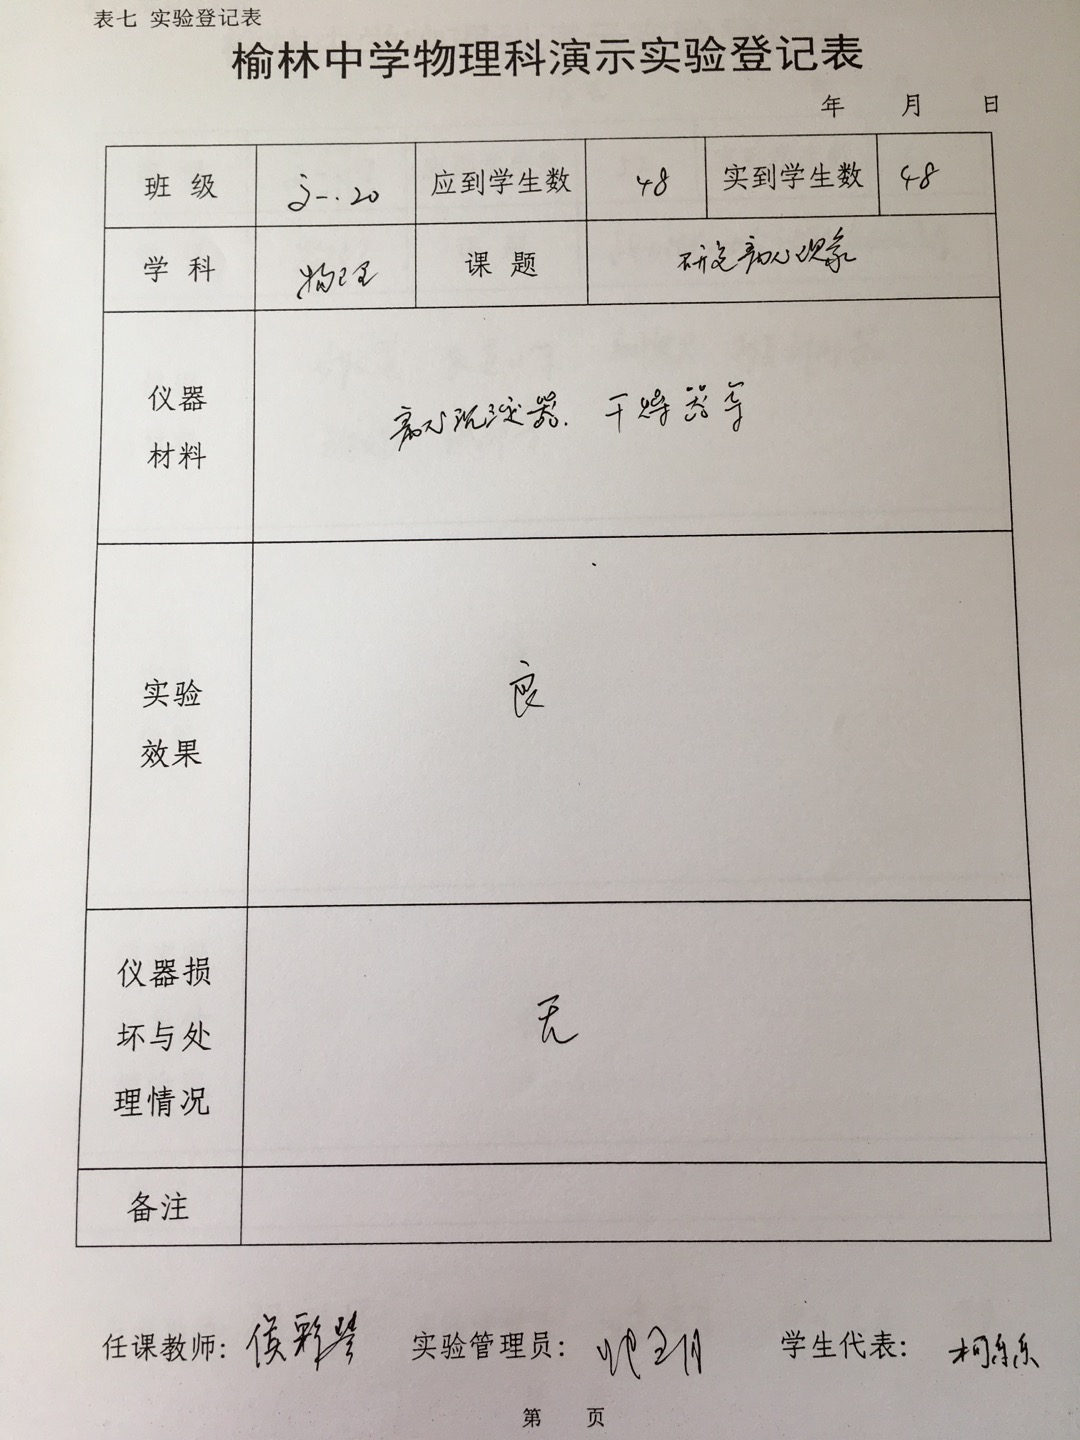 表七 实验登记表
榆林中学物理科演示实验登记表
年 月 日
班 级 20 应到学生数 48 实到学生数 48
学 科 物理 课 题 研究离心现象
仪器
材料
离心沉淀器. 干燥器等
实验
效果
良
仪器损
坏与处
理情况
无
备注
任课教师: 侯彩琴 实验管理员: 学生代表: 柯乐乐
第 页